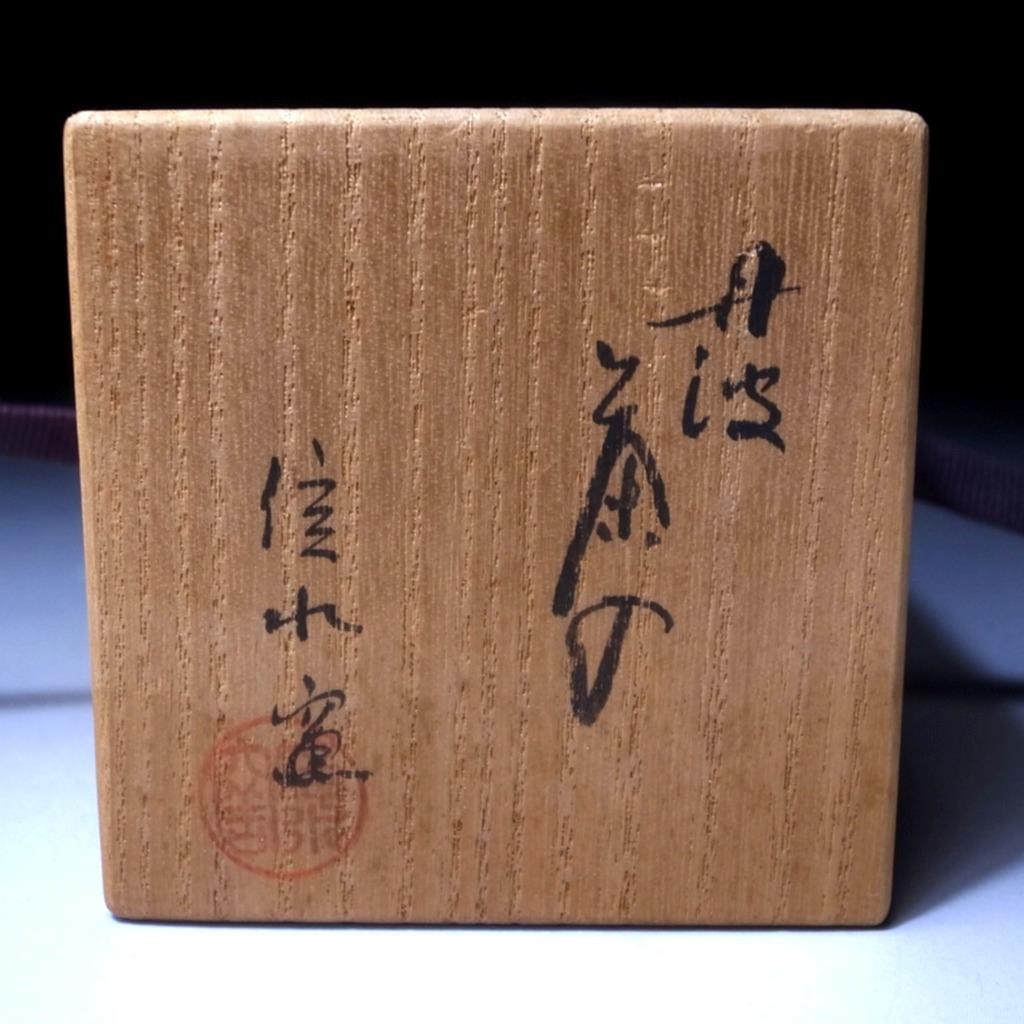 丹波
茶入
信水窯